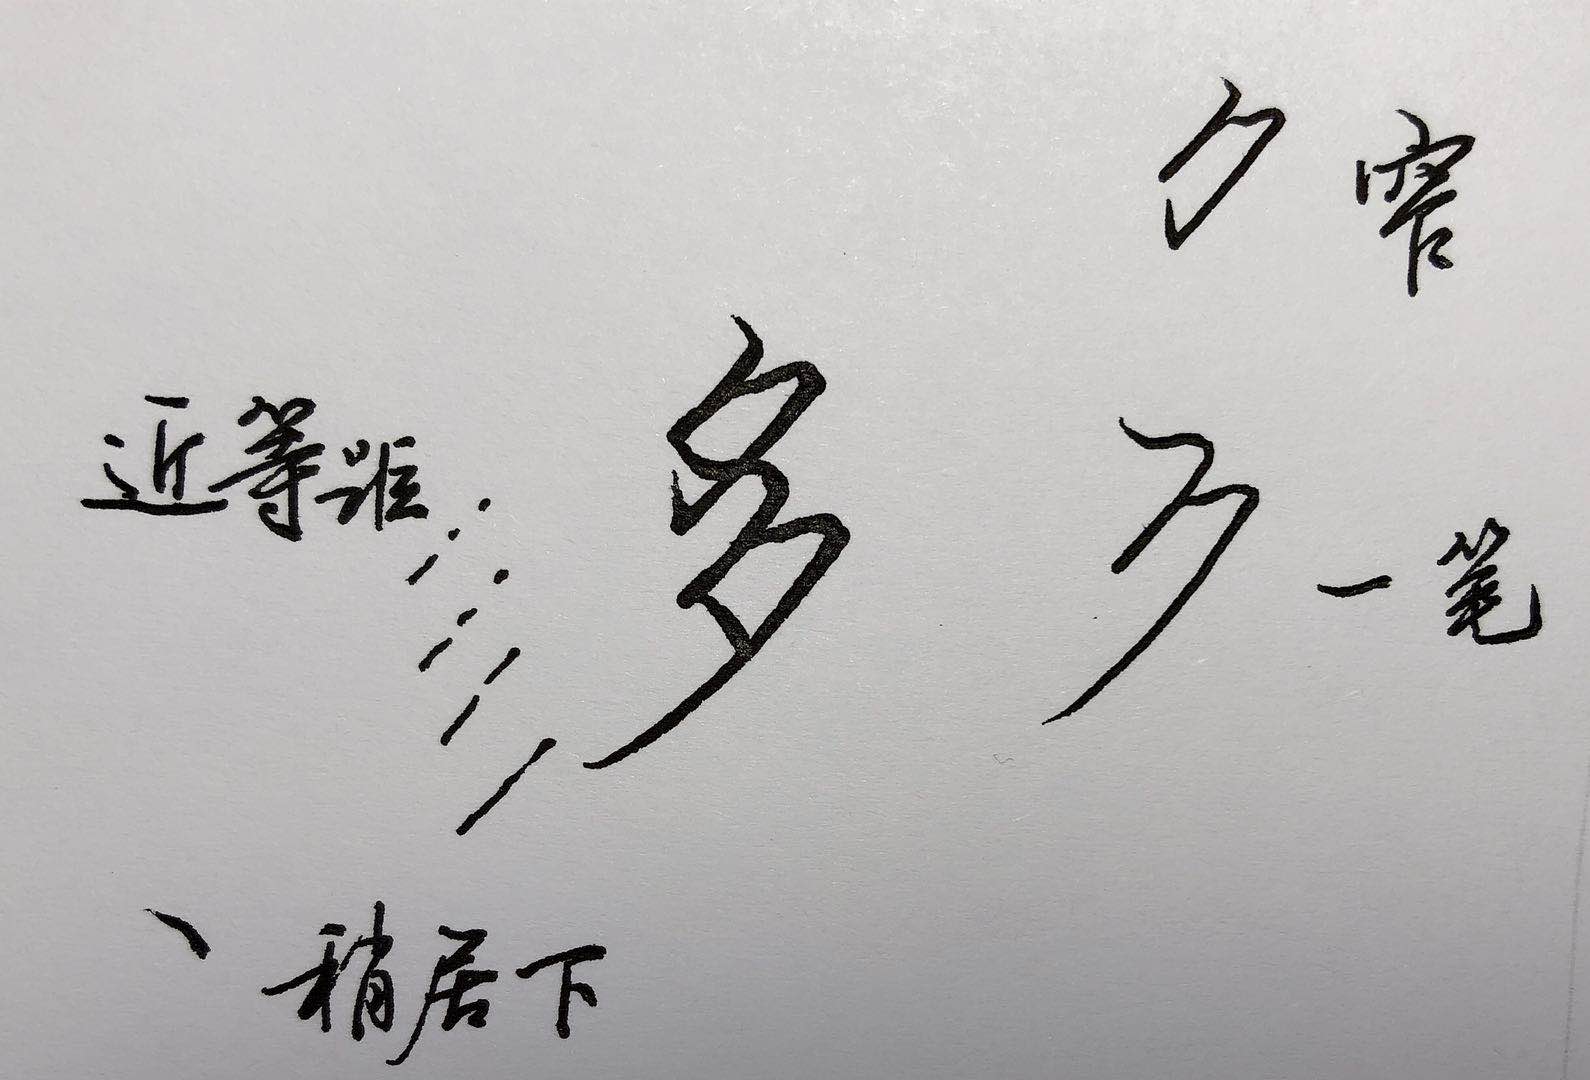 窄
多
近等距
一笔
丶 稍居下